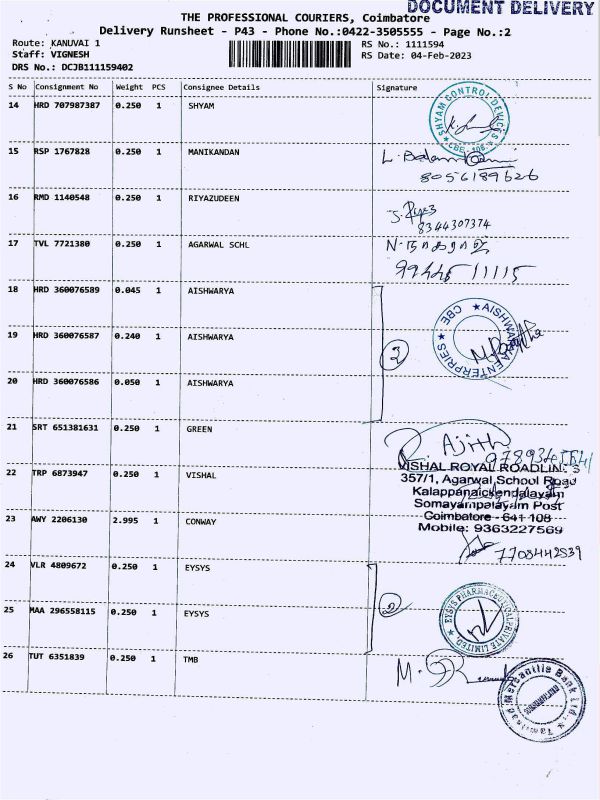 DOCUMENT DELIVERY
THE PROFESSIONAL COURIERS, Coimbatore
Delivery Runsheet - P43 - Phone No.:0422-3505555 - Page No.:2
Route: KANUVAI 1
Staff: VIGNESH
DRS No.: DCJB111159402
RS No.: 1111594
RS Date: 04-Feb-2023
S No Consignment No Weight PCS Consignee Details Signature
14 HRD 707987387 0.250 1 SHYAM
SHYAM CONTROL DEVICES ★ CBE - 108. ★
15 RSP 1767828 0.250 1 MANIKANDAN
8056189626
16 RMD 1140548 0.250 1 RIYAZUDEEN
J. Riyaz
8344307374
17 TVL 7721380 0.250 1 AGARWAL SCHL
N. நாகராஜ்
99445 11115
18 HRD 360076589 0.045 1 AISHWARYA
19 HRD 360076587 0.240 1 AISHWARYA
3
★ AISHWARYA ENTERPRIES ★ CBE
20 HRD 360076586 0.050 1 AISHWARYA
21 SRT 651381631 0.250 1 GREEN
R. Ajith
22 TRP 6873947 0.250 1 VISHAL
VISHAL ROYAL ROADLINES
357/1, Agarwal School Road
Kalappanaickendalayam
Somayampalayam Post
Coimbatore - 641 108
Mobile: 9363227569
23 AWY 2206130 2.995 1 CONWAY
7708442839
24 VLR 4809672 0.250 1 EYSYS
25 MAA 296558115 0.250 1 EYSYS
2
EYSYS PHARMACEUTICAL PRIVATE LIMITED ★
26 TUT 6351839 0.250 1 TMB
Tamilnad Mercantile Bank Ltd.,